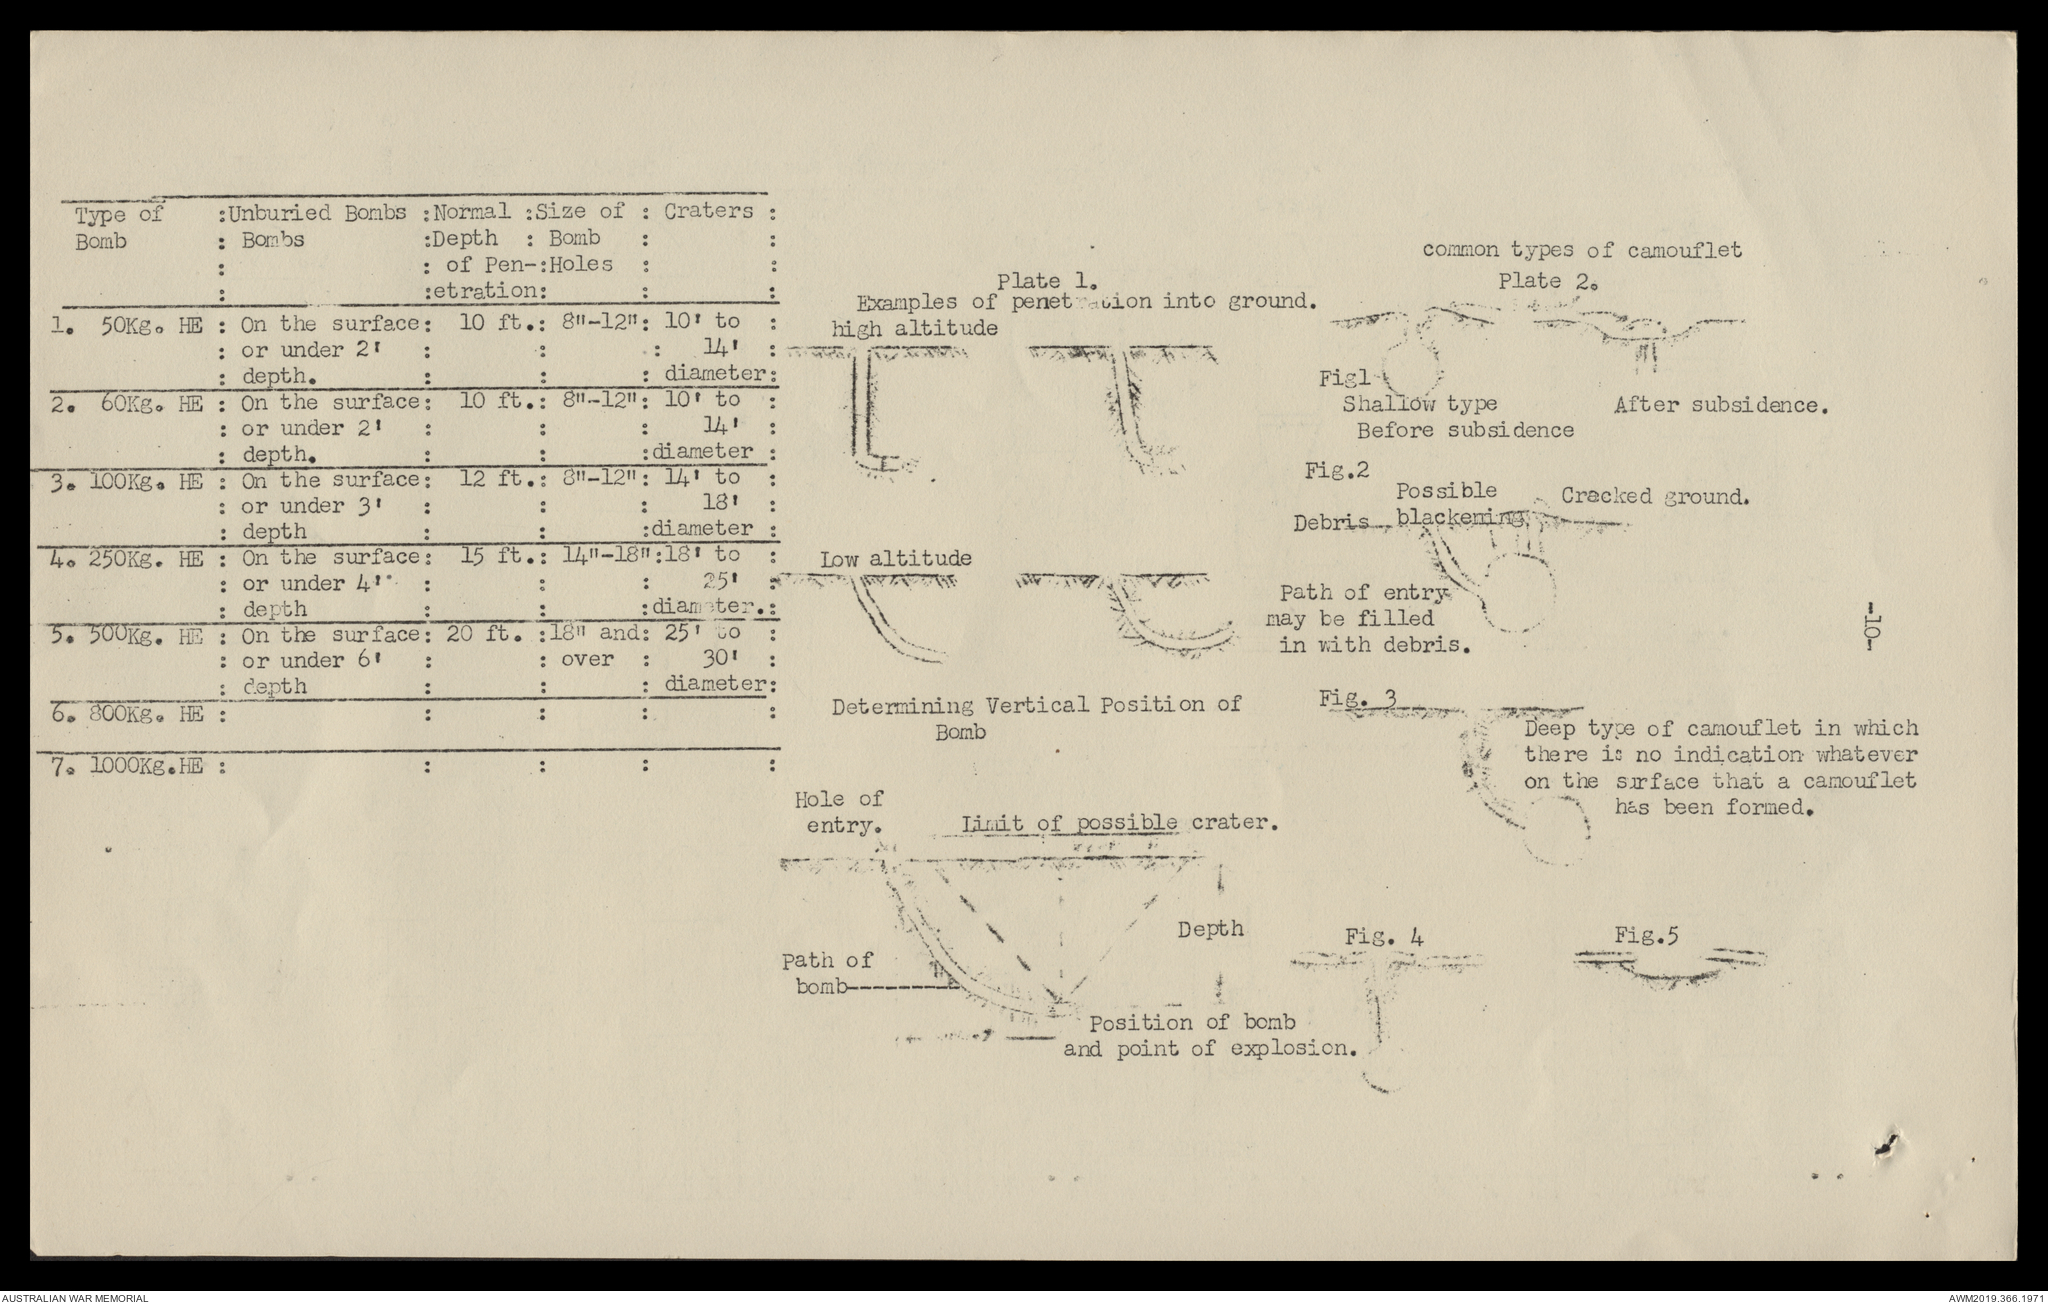 Type of :Unburied Bombs :Normal :Size of : Craters :
Bomb : Bombs :Depth : Bomb : :
: : of Pen-:Holes : :
: :etration: : :
1. 50Kg. HE : On the surface: 10 ft.: 8"-12": 10' to :
: or under 2' : : : 14' :
: depth. : : : diameter:
2. 60Kg. HE : On the surface: 10 ft.: 8"-12": 10' to :
: or under 2' : : : 14' :
: depth. : : :diameter :
3. 100Kg. HE : On the surface: 12 ft.: 8"-12": 14' to :
: or under 3' : : : 18' :
: depth : : :diameter :
4. 250Kg. HE : On the surface: 15 ft.: 14"-18":18' to :
: or under 4' : : : 25' :
: depth : : :diameter.:
5. 500Kg. HE : On the surface: 20 ft. :18" and: 25' to :
: or under 6' : : over : 30' :
: depth : : : diameter:
6. 800Kg. HE : : : : :
7. 1000Kg.HE : : : : :
Plate 1.
Examples of penetration into ground.
high altitude
Low altitude
Determining Vertical Position of
Bomb
Hole of
entry.
Limit of possible crater.
Depth
Path of
bomb---------
Position of bomb
and point of explosion.
common types of camouflet
Plate 2.
Fig1
Shallow type
Before subsidence
After subsidence.
Fig.2
Possible
blackening
Cracked ground.
Debris
Path of entry
may be filled
in with debris.
Fig. 3
Deep type of camouflet in which
there is no indication whatever
on the surface that a camouflet
has been formed.
Fig. 4
Fig.5
-10-
AUSTRALIAN WAR MEMORIAL
AWM2019.366.1971